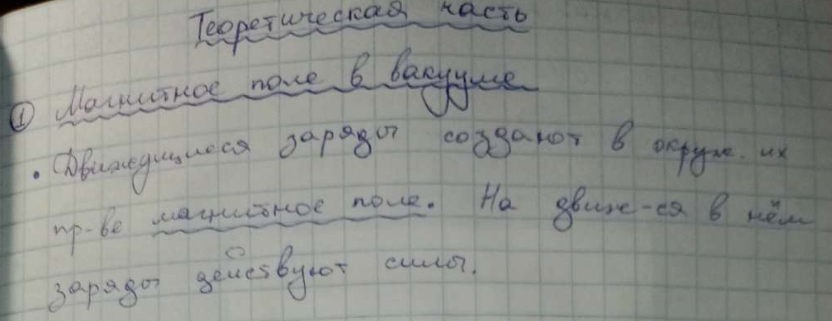 Теоретическая часть
① Магнитное поле в вакууме
• Движущиеся заряды создают в окруж. их
пр-ве магнитное поле. На движ-ся в нём
заряды действуют силы.